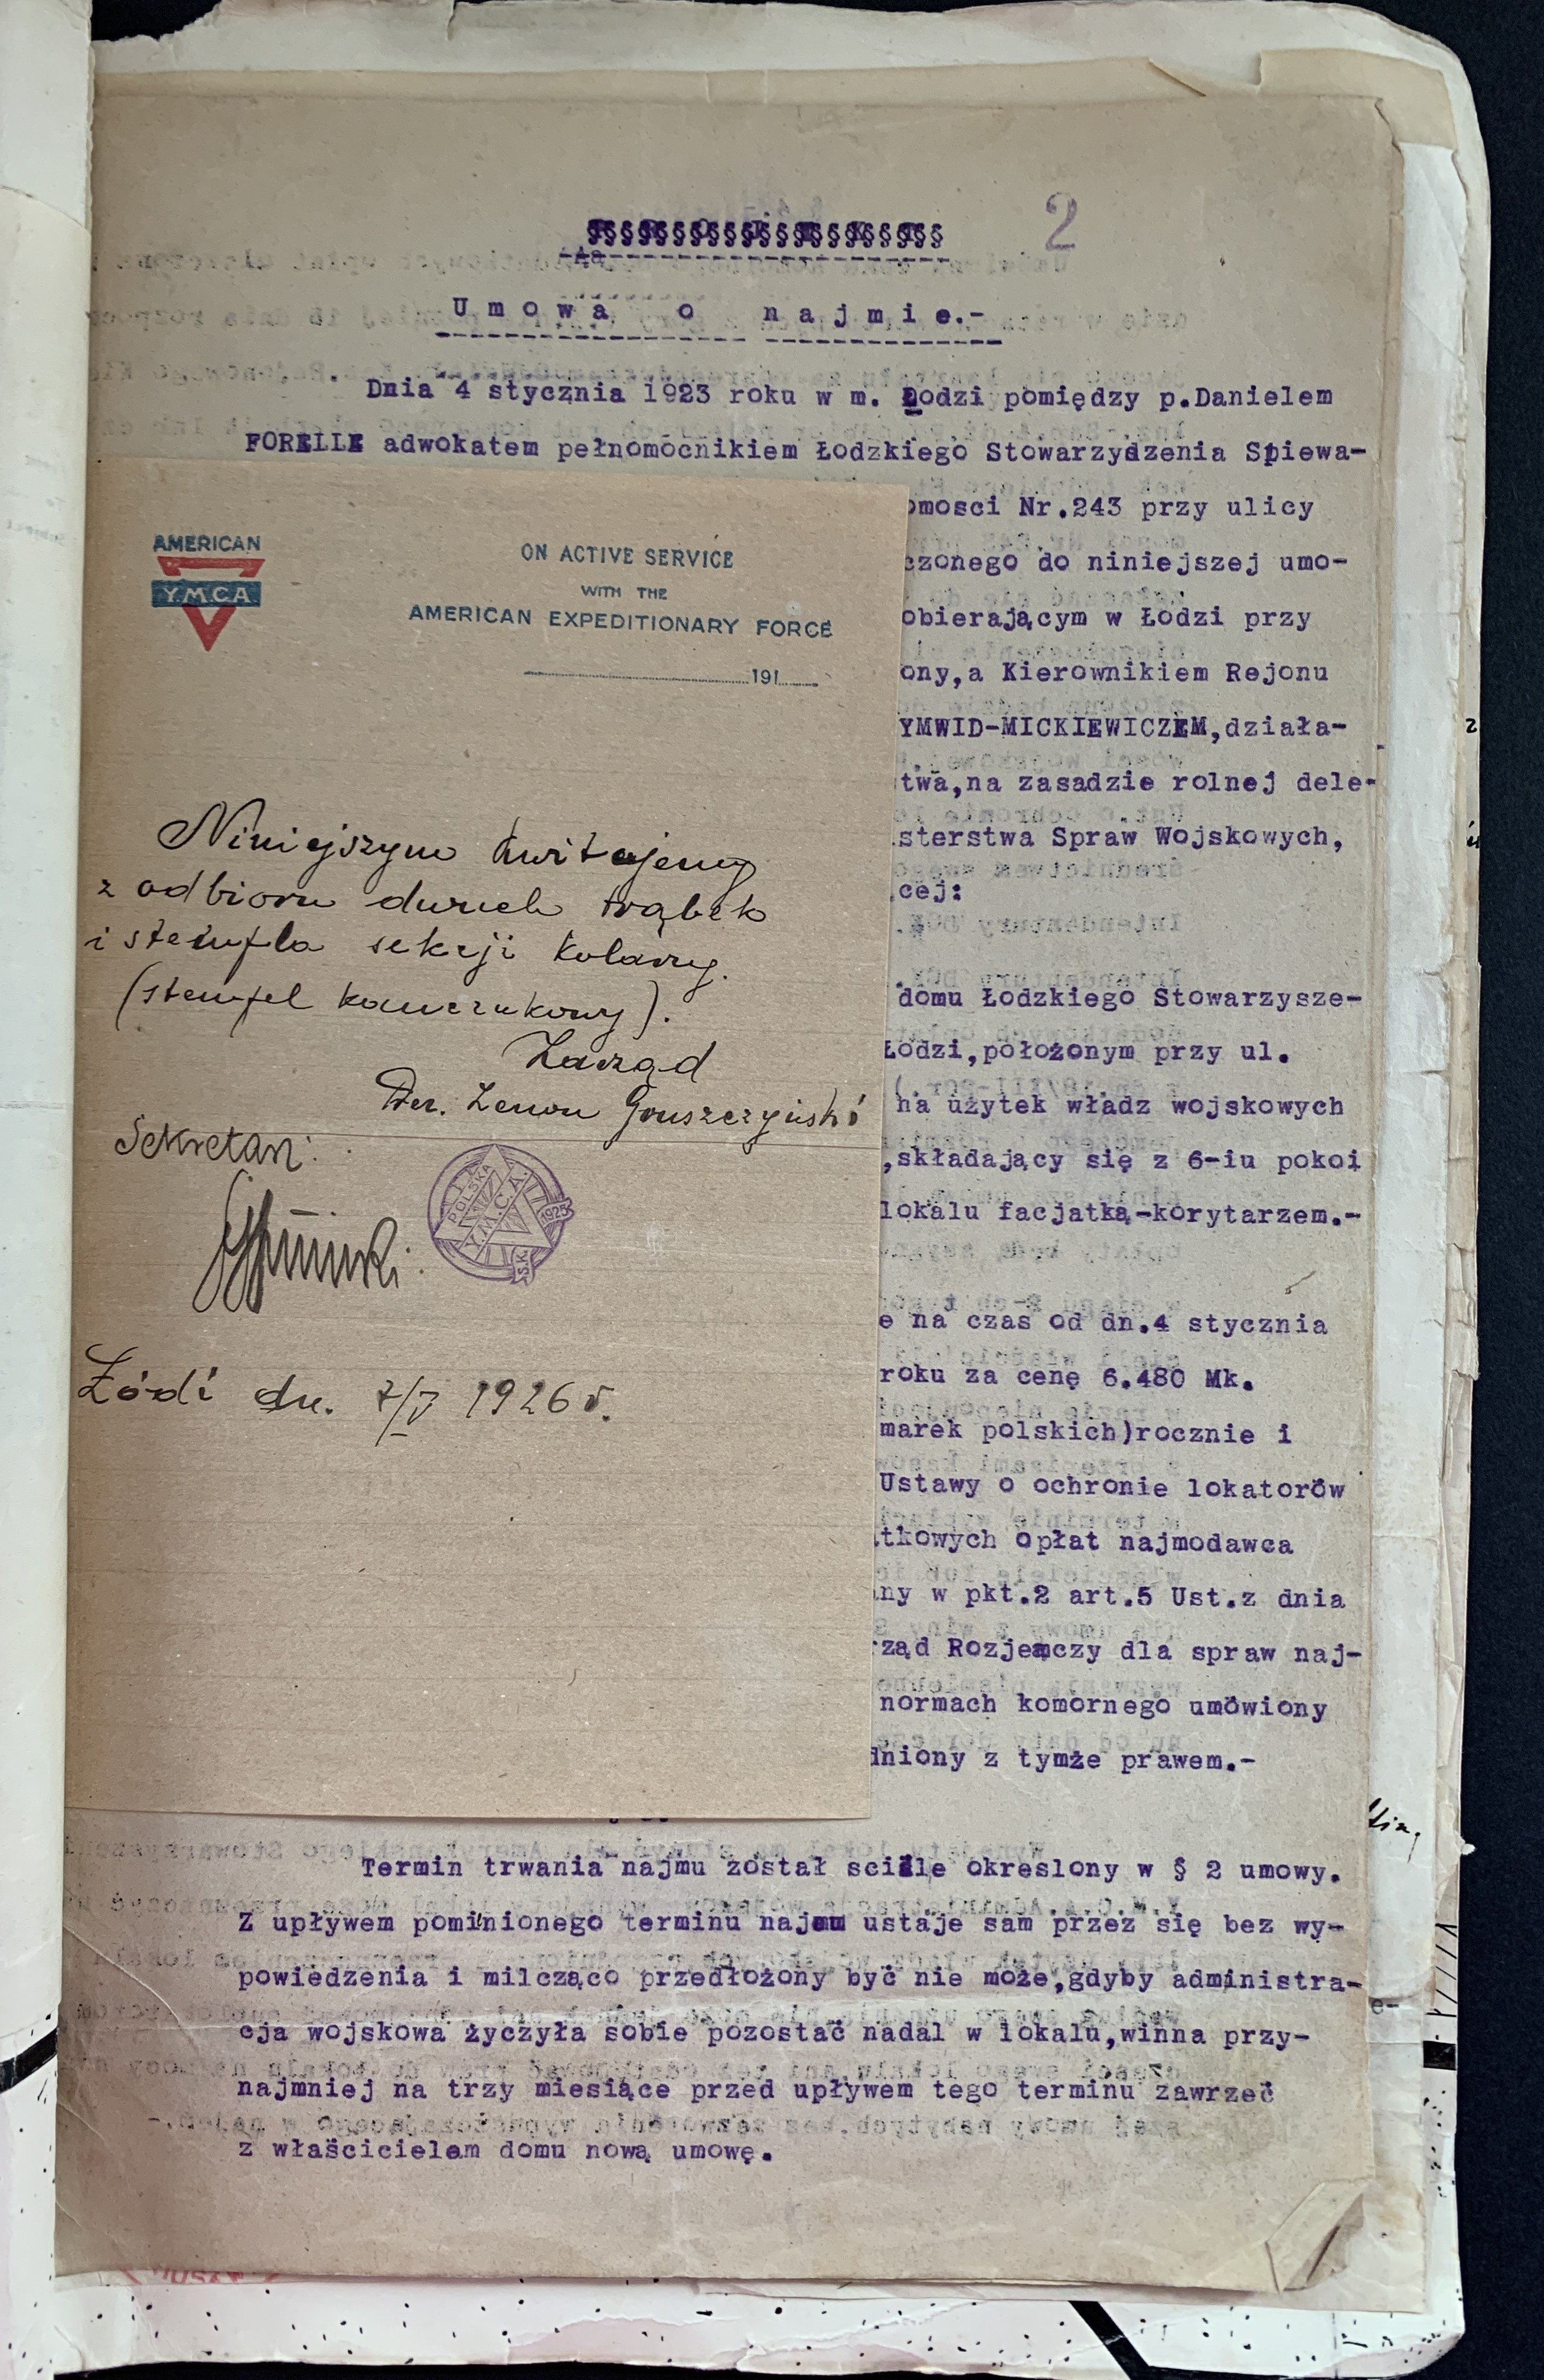 2
Umowa o najmie.-
Dnia 4 stycznia 1923 roku w m. Łodzi pomiędzy p.Danielem
FORELLE adwokatem pełnomocnikiem Łodzkiego Stowarzyszenia Spiewa-
omosci Nr.243 przy ulicy
czonego do niniejszej umo-
obierającym w Łodzi przy
ony,a Kierownikiem Rejonu
YMWID-MICKIEWICZEM,działa-
twa,na zasadzie rolnej dele-
sterstwa Spraw Wojskowych,
cej:
domu Łodzkiego Stowarzysze-
Łodzi,położonym przy ul.
na użytek władz wojskowych
,składający się z 6-iu pokoi
lokalu facjatką-korytarzem.-
e na czas od dn.4 stycznia
roku za cenę 6.480 Mk.
marek polskich)rocznie i
Ustawy o ochronie lokatorów
tkowych opłat najmodawca
ny w pkt.2 art.5 Ust.z dnia
rząd Rozjemczy dla spraw naj-
normach komornego umówiony
dniony z tymże prawem.-
Termin trwania najmu został scisle okreslony w § 2 umowy.
Z upływem pominionego terminu najmu ustaje sam przez się bez wy-
powiedzenia i milcząco przedłożony być nie może,gdyby administra-
cja wojskowa życzyła sobie pozostać nadal w lokalu,winna przy-
najmniej na trzy miesiące przed upływem tego terminu zawrzeć
z właścicielem domu nową umowę.
AMERICAN
Y.M.C.A.
ON ACTIVE SERVICE
WITH THE
AMERICAN EXPEDITIONARY FORCE
191
Niniejszym kwitujemy
z odbioru dwuch trąbek
i stempla sekcji kolarzy.
(stempel kauczukowy).
Zarząd
Zenon Gruszczyński
Sekretarz:
POLSKA
Y.M.C.A.
1925
S.K.
Łódź dn. 7/V 1926 r.